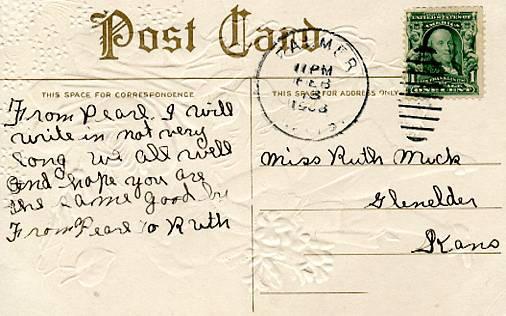 Post Card
THIS SPACE FOR CORRESPONDENCE
THIS SPACE FOR ADDRESS ONLY
PALMER
11 PM
FEB
3
1908
UNITED STATES OF AMERICA
1 1
ONE CENT
From Pearl. I will
write in not very
long we all well
and hope you are
the same good by
From Pearl to Ruth
Miss Ruth Muck
Glenelder
Kans